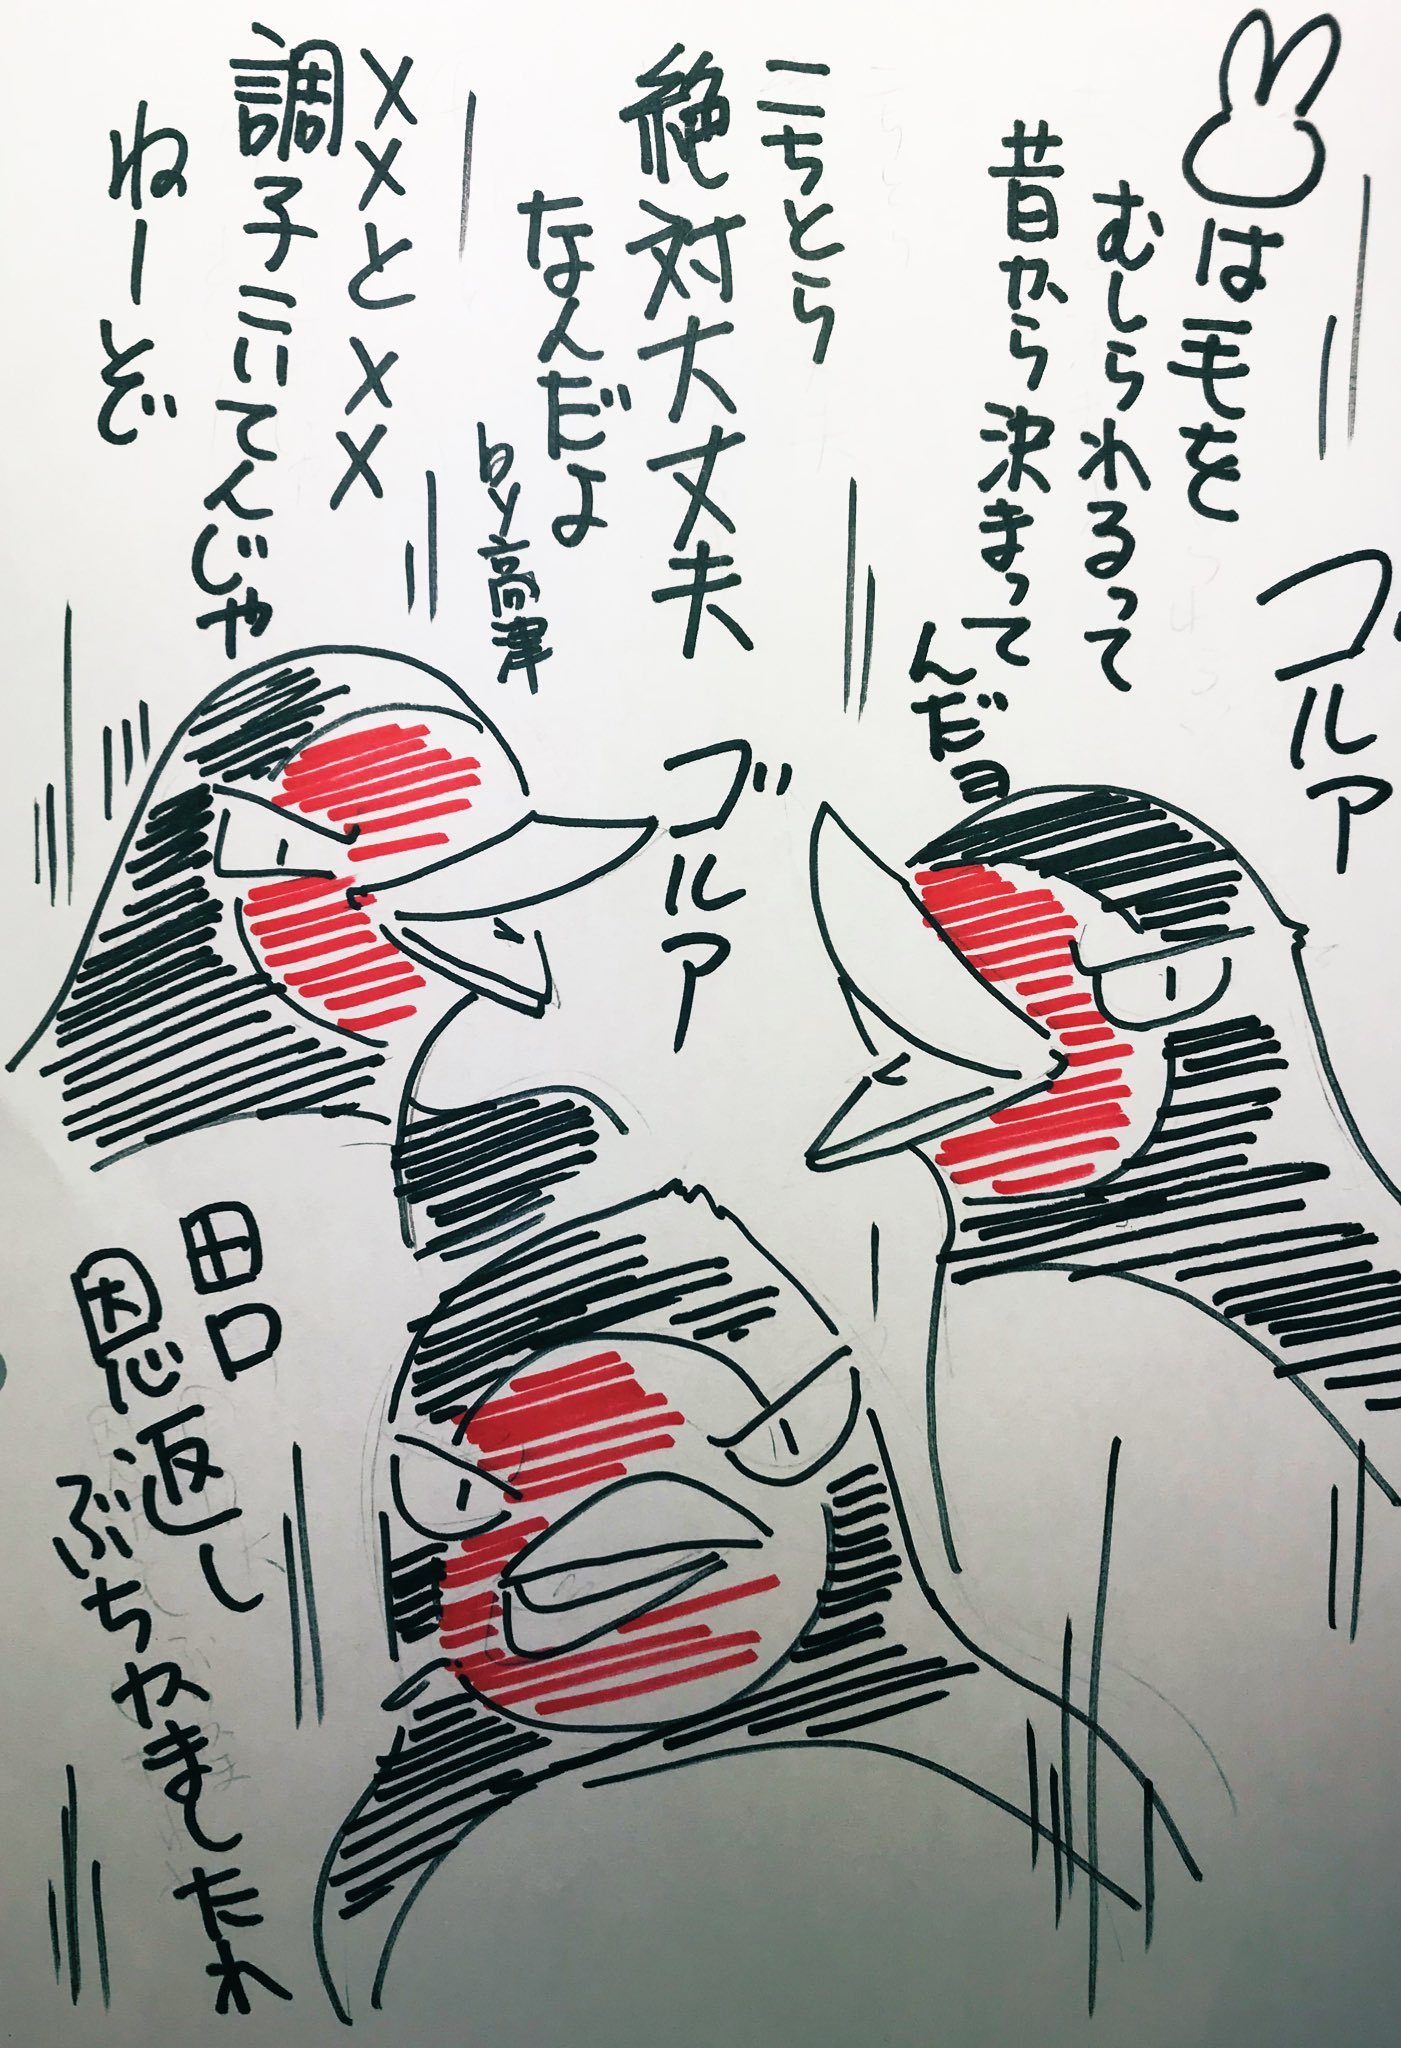 は毛を
むしられるって
昔から決まって
んだヨ
ゴルァ
こちとら
絶対大丈夫
なんだよ
by高津
××と××
調子こいてんじゃ
ねーぞ
ゴルァ
田口
恩返し
ぶちかましたれ